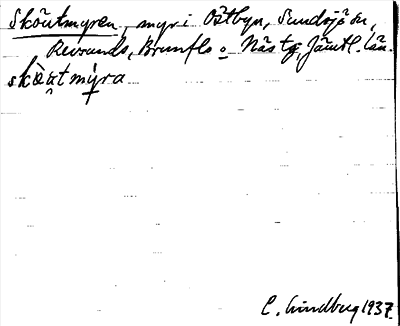 Skoutmyren, myr i Östbyn, Sundsjö sn,
Revsunds, Brunflo o Näs tg, Jämtl. län.
skòutmy̌ra
C. Lindberg 1937.